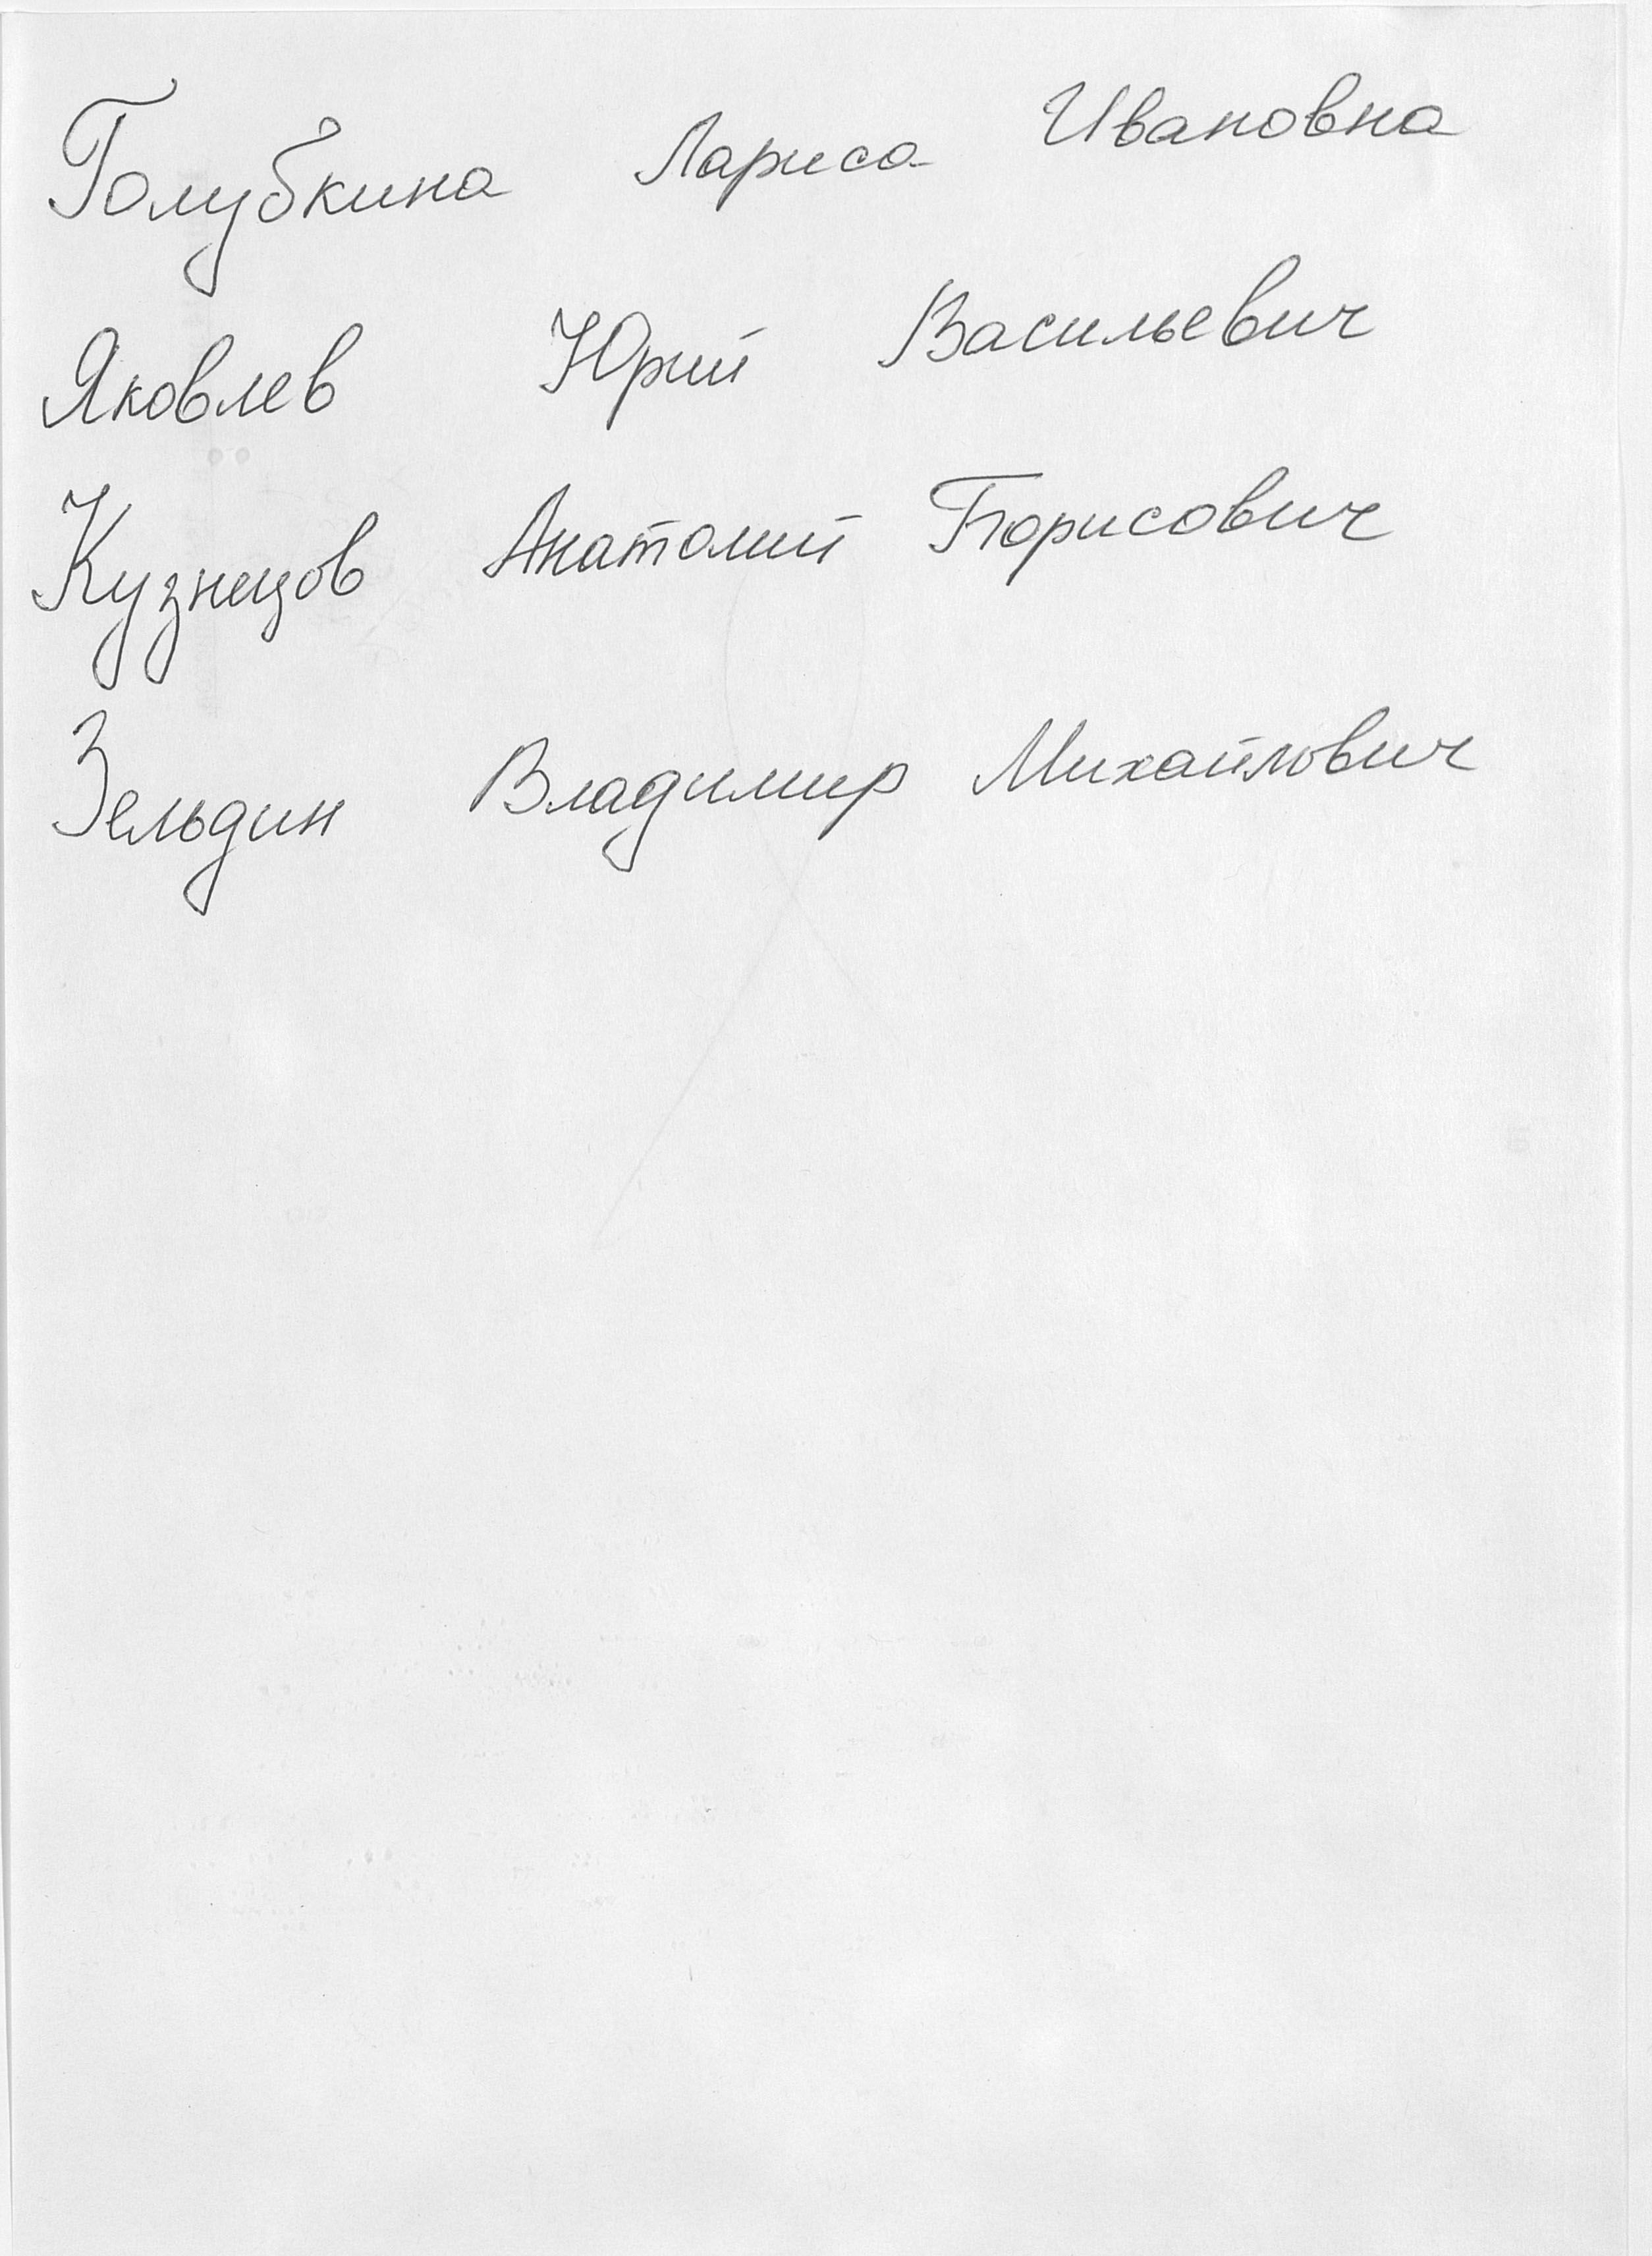 Голубкина Лариса Ивановна
Яковлев Юрий Васильевич
Кузнецов Анатолий Борисович
Зельдин Владимир Михайлович